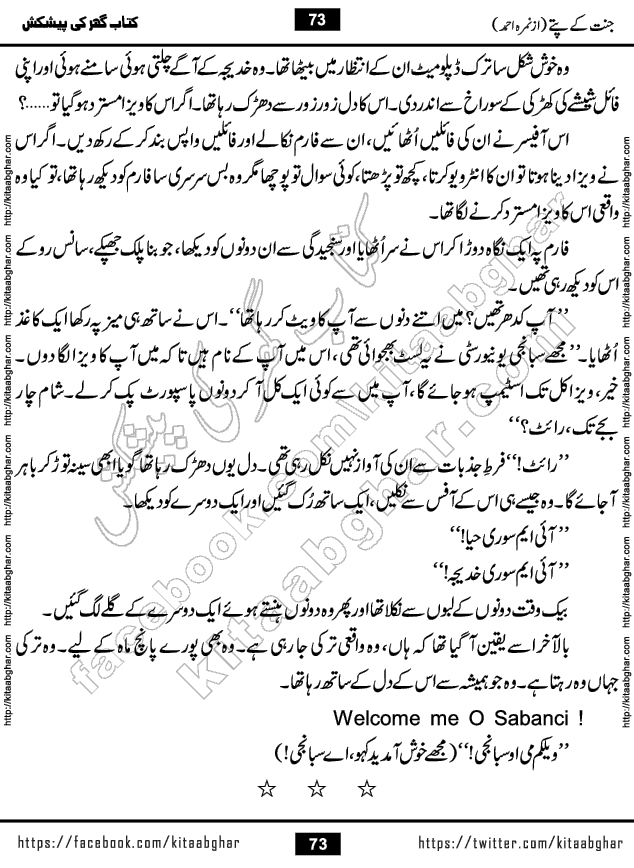 جنت کے پتے (از نمرہ احمد)
73
کتاب گھر کی پیشکش
وہ خوش شکل سا ترک ڈپلومیٹ ان کے انتظار میں بیٹھا تھا۔ وہ خدیجہ کے آگے چلتی ہوئی سامنے ہوئی اور اپنی
فائل شیشے کی کھڑکی کے سوراخ سے اندر دی۔ اس کا دل زور زور سے دھڑک رہا تھا۔ اگر اس کا ویزا مسترد ہو گیا تو......؟
اس آفیسر نے ان کی فائلیں اُٹھائیں، ان سے فارم نکالے اور فائلیں واپس بند کر کے رکھ دیں۔ اگر اس
نے ویزا دینا ہوتا تو ان کا انٹرویو کرتا، کچھ تو پڑھتا، کوئی سوال تو پوچھا مگر وہ بس سرسری سا فارم کو دیکھ رہا تھا، تو کیا وہ
واقعی اس کا ویزا مسترد کرنے لگا تھا۔
فارم پہ ایک نگاہ دوڑا کر اس نے سر اُٹھایا اور سنجیدگی سے ان دونوں کو دیکھا، جو بنا پلک جھپکے، سانس روکے
اس کو دیکھ رہی تھیں۔
’’آپ کدھر تھیں؟ میں اتنے دنوں سے آپ کا ویٹ کر رہا تھا‘‘۔ اس نے ساتھ ہی میز پہ رکھا ایک کاغذ
اُٹھایا۔ ’’مجھے سبانجی یونیورسٹی نے یہ لسٹ بھجوائی تھی، اس میں آپ کے نام ہیں تاکہ میں آپ کا ویزا لگا دوں۔
خیر، ویزا کل تک اسٹیمپ ہو جائے گا، آپ میں سے کوئی ایک کل آ کر دونوں پاسپورٹ پک کر لے۔ شام چار
بجے تک، رائٹ؟‘‘
’’رائٹ!‘‘ فرطِ جذبات سے ان کی آواز نہیں نکل رہی تھی۔ دل یوں دھڑک رہا تھا گویا ابھی سینہ توڑ کر باہر
آ جائے گا۔ وہ جیسے ہی اس کے آفس سے نکلیں، ایک ساتھ رُک گئیں اور ایک دوسرے کو دیکھا۔
’’آئی ایم سوری حیا!‘‘
’’آئی ایم سوری خدیجہ!‘‘
بیک وقت دونوں کے لبوں سے نکلا تھا اور پھر وہ دونوں ہنستے ہوئے ایک دوسرے کے گلے لگ گئیں۔
بالآخر اسے یقین آ گیا تھا کہ ہاں، وہ واقعی ترکی جا رہی ہے۔ وہ بھی پورے پانچ ماہ کے لیے۔ وہ ترکی
جہاں وہ رہتا ہے۔ وہ جو ہمیشہ سے اس کے دل کے ساتھ رہا تھا۔
Welcome me O Sabanci !
’’ویلکم می او سبانجی!‘‘ (مجھے خوش آمدید کہو، اے سبانجی!)
☆ ☆ ☆
http://kitaabghar.com http://kitaabghar.com http://kitaabghar.com http://kitaabghar.com http://kitaabghar.com http://kitaabghar.com
http://kitaabghar.com http://kitaabghar.com http://kitaabghar.com http://kitaabghar.com http://kitaabghar.com http://kitaabghar.com
کتاب گھر کی پیشکش
facebook.com/kitaabghar
kitaabghar.com
https://facebook.com/kitaabghar
73
https://twitter.com/kitaabghar